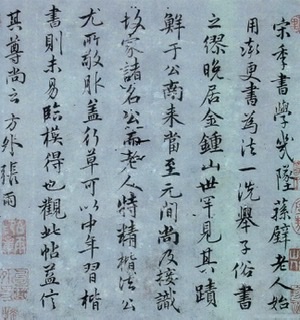 宋季書學幾墜蓀壁老人始
用澎更書為法一洗舉子俗書
之繆晚居金鍾山世罕見其蹟
鮮于公南來當至元間尚及接識
故家諸名公而老人特精楷法公
尤所敬服蓋行草可以中年習楷
書則未易臨模得也觀此帖益信
其尊尚云方外張雨